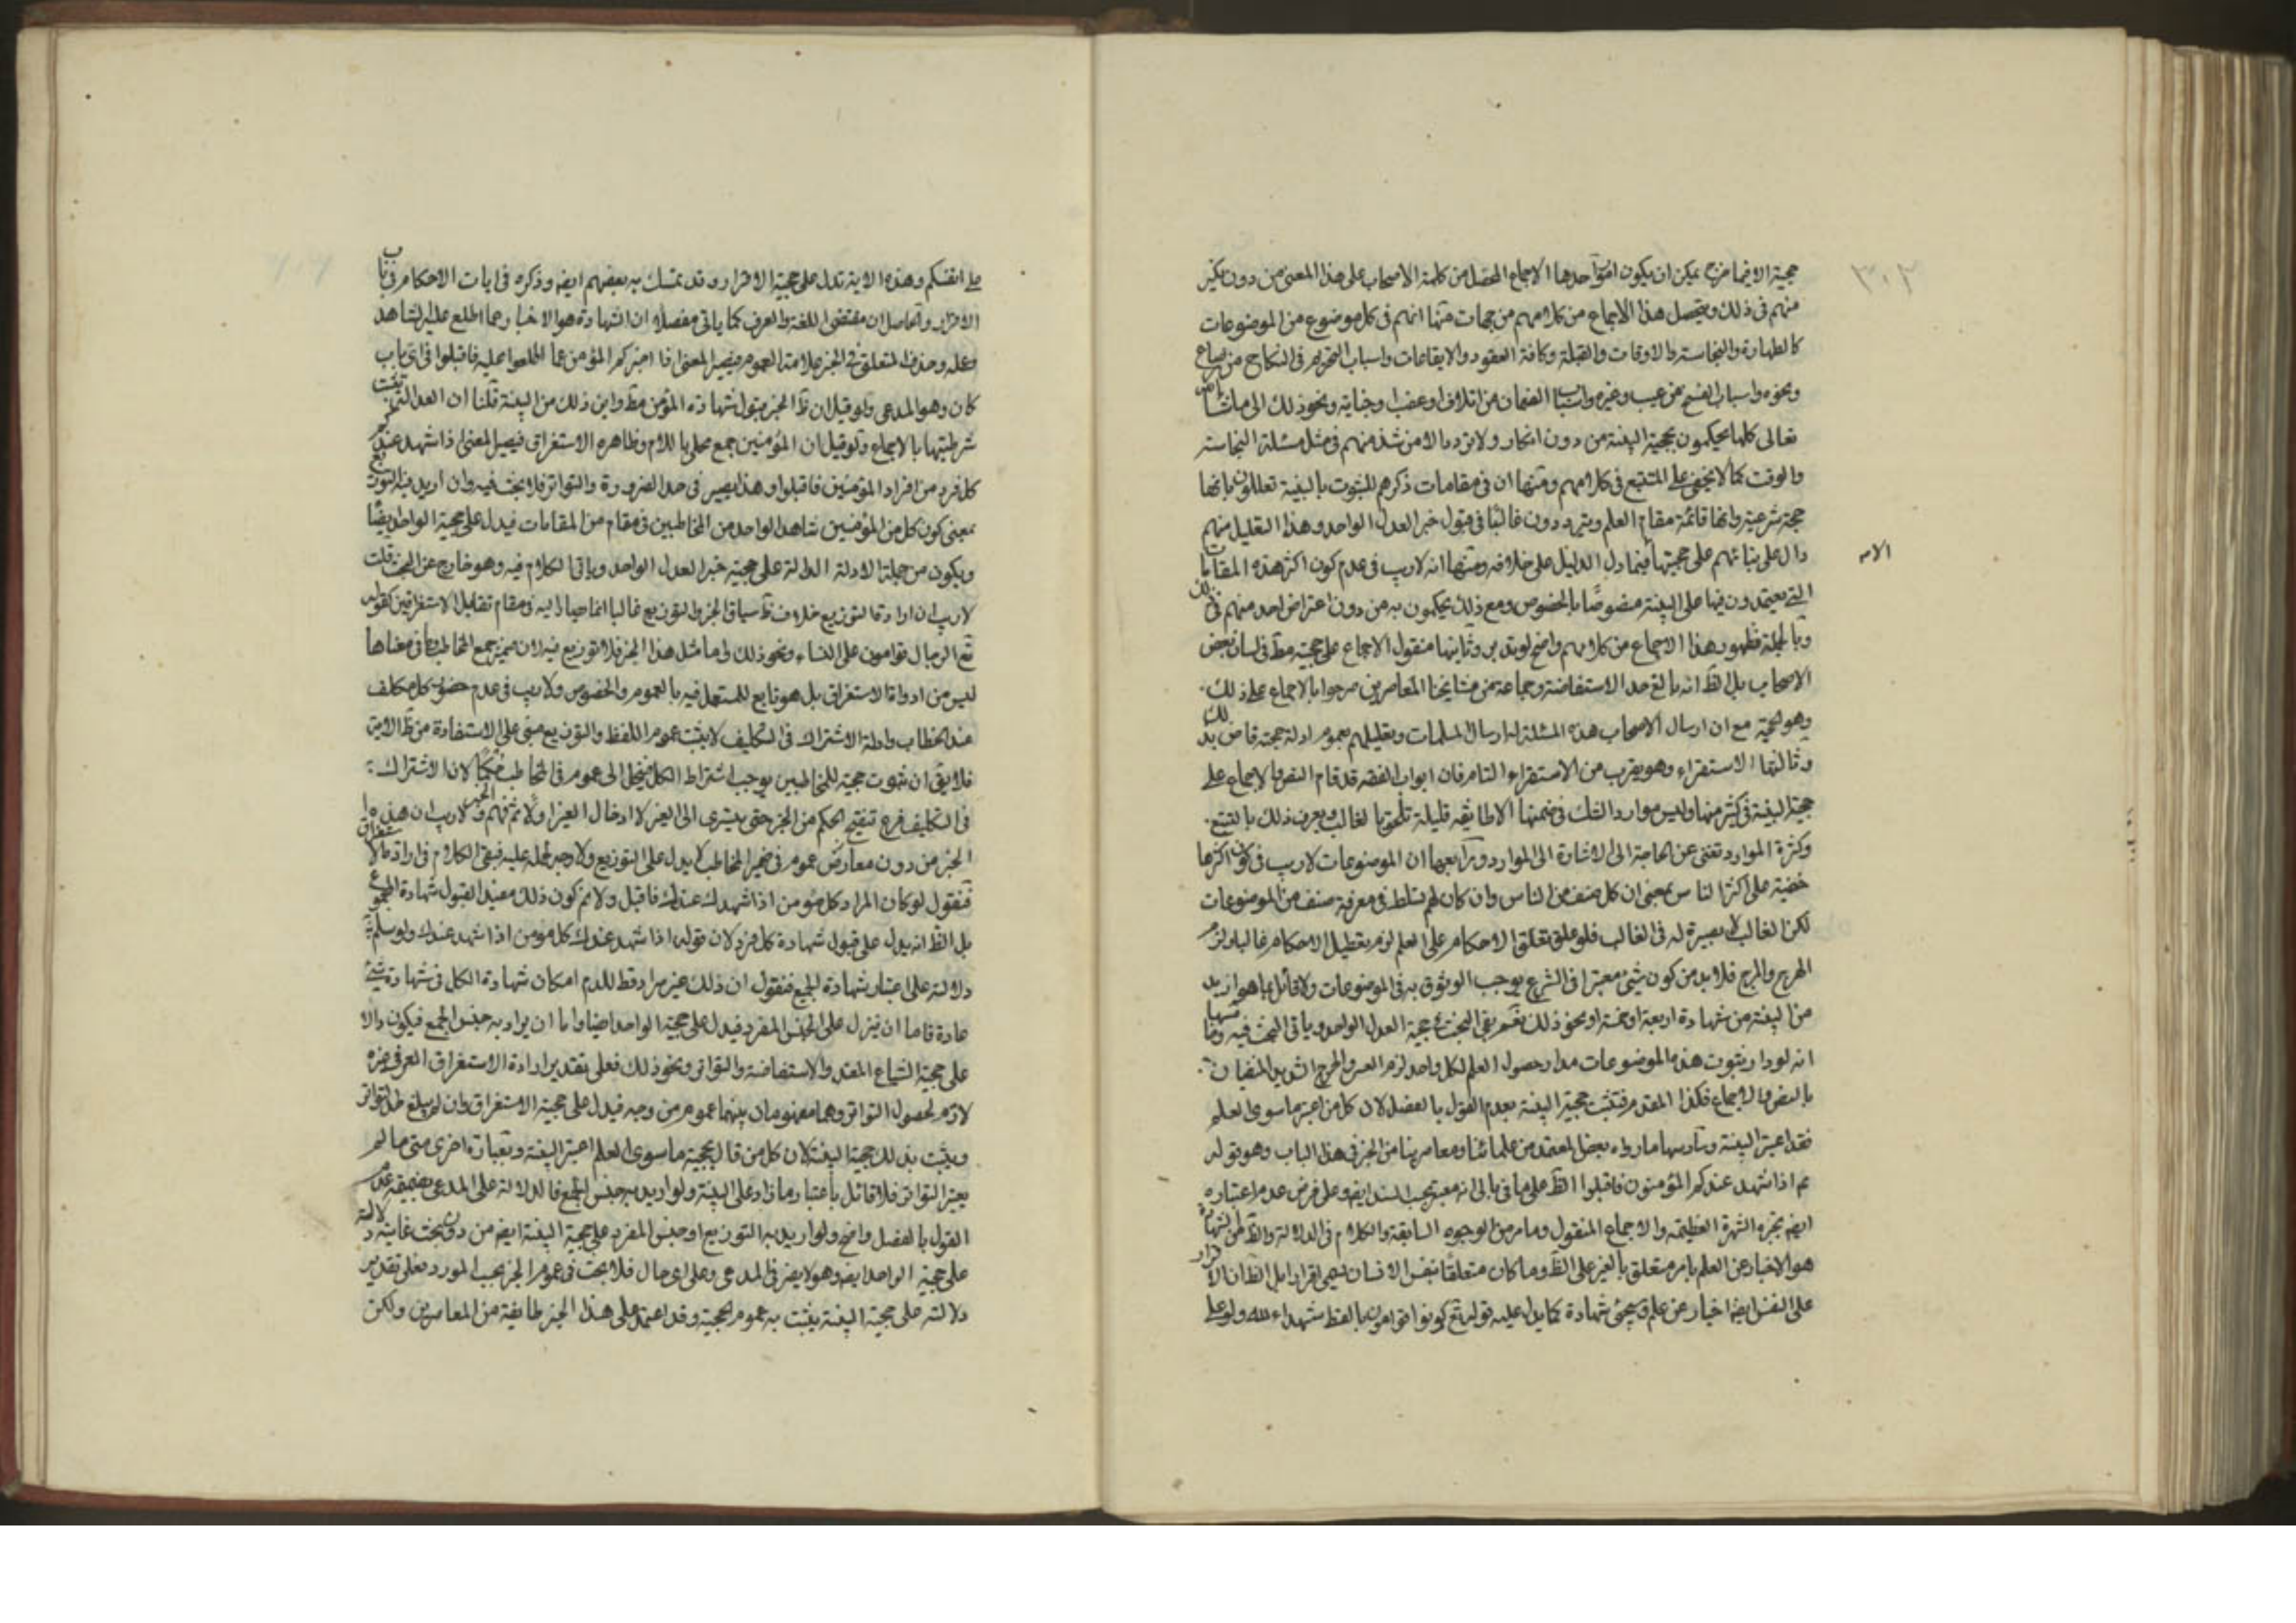 ٣٠٢
حجية الا فيما خرج يمكن ان يكون امورا احدها الاجماع المحصل من كلمة الاصحاب على هذا المعنى من دون نكير
منهم في ذلك ويتحصل هذا الاجماع من كلامهم من جهات منها انهم في كل موضوع من الموضوعات
كالطهارة والنجاسة والاوقات والقبلة وكافة العقود والايقاعات واسباب التحريم في النكاح من رضاع
ونحوه واسباب الفسخ من عيب وغيره واسباب الضمان من اتلاف او غصب او جناية ونحو ذلك الى ما شاء الله
تعالى كلها يحكمون بحجية البينة من دون انكار ولا تردد الا من شذ منهم في مثل مسئلة النجاسة
والوقت كما لا يخفى على المتتبع في كلامهم ومنها ان في مقامات ذكرهم للثبوت بالبينة تعللون بانها
حجة شرعية وانها قائمة مقام العلم ويترددون غالبا في قبول خبر العدل الواحد وهذا التعليل منهم
دال على بنائهم على حجيتها فيما دل الدليل على خلافه ومنها انه لا ريب في عدم كون اكثر هذه المقامات
الامر
التي يعتمدون فيها على البينة منصوصا بالخصوص ومع ذلك يحكمون به من دون اعتراض احد منهم في ذلك
وبالجملة فظهور هذا الاجماع من كلامهم واضح لو تدبر وثانيها منقول الاجماع على حجيته مط في لسان بعض
الاصحاب بل الظ انه بالغ حد الاستفاضة وجماعة من مشايخنا المعاصرين صرحوا بالاجماع على ذلك
وهو الحجة مع ان ارسال الاصحاب هذه المسئلة ارسال المسلمات وتعليلهم بعموم ادلة حجته قاض بذلك
وثالثها الاستقراء وهو يقرب من الاستقراء التام فان ابواب الفقه قد قام النص والاجماع على
حجية البينة في كثير منها وليس موارد الشك في ضمنها الا طائفة قليلة تلحق بالغالب ويعرف ذلك بالتتبع
وكثرة الموارد تغنى عن الحاجة الى الاشارة الى الموارد ورابعها ان الموضوعات لا ريب في كون اكثرها
خفية على اكثر الناس بمعنى ان كل صنف من الناس وان كان لهم تسلط في معرفة صنف من الموضوعات
لكن الغالب لا بصيرة له في الغالب فلو علق تعلق الاحكام على العلم لزم تعطيل الاحكام غالبا ولزم
الهرج والمرج فلا بد من كون شيئ معتبرا في الشرع يوجب الوثوق به في الموضوعات ولا قائل بما هو ازيد
من البينة من شهادة اربعة او خمسة او نحو ذلك نعم بقي البحث في حجية العدل الواحد وياتي البحث فيه ومنها
انه لو دار ثبوت هذه الموضوعات مدار حصول العلم لكل واحد لزم العسر والحرج الشديد المنفيان
بالنص والاجماع فكذا المقدم فتثبت حجية البينة بعدم القول بالفصل لان كل من اعتبر ما سوى العلم
فقد اعتبر البينة وسادسها ما رواه بعض المعتمد من علمائنا ومعاصرينا من الخبر في هذا الباب وهو قوله
عم اذا شهد عندكم المؤمنون فاقبلوا الظ على ما في بالي انه معتبر بحسب السند ايضا وعلى فرض عدم اعتباره
ايضا تجبره الشهرة العظيمة والاجماع المنقول وما مر من الوجوه السابقة والكلام في الدلالة والظ ان الشهادة
هو الاخبار عن العلم بامر متعلق بالغير على الظ وما كان متعلقا بنفس الانسان يسمى اقرارا بل الظ ان الاقرار
على النفس ايضا اخبار عن علم ويسمى شهادة كما يدل عليه قوله تع كونوا قوامون بالقسط شهداء لله ولو على
على انفسكم وهذه الاية تدل على حجية الاقرار وقد تمسك به بعضهم ايضا وذكره في ايات الاحكام في باب
الاقرار والحاصل ان مقتضى اللغة والعرف كما ياتي مفصلا ان الشهادة هو الاخبار عما اطلع عليه الشاهد
وعلمه وحذف المتعلق في الخبر علامة العموم فيصير المعنى اذا اخبركم المؤمن عما اطلعوا عليه فاقبلوا في اي باب
كان وهو المدعى ولو قيل ان ظ الخبر قبول شهادة المؤمن مط واين ذلك من البينة قلنا ان العدالة تثبت
شرطيتها بالاجماع ولو قيل ان المؤمنين جمع محلى باللام وظاهره الاستغراق فيصير المعنى اذا شهد عندكم
كل فرد من افراد المؤمنين فاقبلوا وهذا يصير في حد الضرورة والتواتر فلا بحث فيه وان اريد به التوزيع
بمعنى كون كل من المؤمنين شاهدا لواحد من المخاطبين في مقام من المقامات فيدل على حجية الواحد ايضا
ويكون من جملة الادلة الدالة على حجية خبر العدل الواحد وياتي الكلام فيه وهو خارج عن البحث قلت
لا ريب ان ارادة التوزيع خلاف ظ سياق الخبر والتوزيع غالبا انما يصار اليه في مقام تقابل الاستغراقين كقوله
تع الرجال قوامون على النساء ونحو ذلك واما مثل هذا الخبر فلا توزيع فيه لان ضمير جمع المخاطب وما في معناها
ليس من ادوات الاستغراق بل هو تابع للمستعمل فيه بالعموم والخصوص ولا ريب في عدم حضور كل مكلف
عند الخطاب وادلة الاشتراك في التكليف لا يثبت عموم اللفظ والتوزيع مبنى على الاستفادة من ظ الامر
فلا يقال ان ثبوت حجية للمخاطبين يوجب اشتراط الكل فينحل الى عموم في المخاطب حكما لان الاشتراك
في التكليف فرع تنقيح الحكم من الخبر حتى يسرى الى الغير لا ادخال الغير اولا ثم فهم الخبر ولا ريب ان هذا
الخبر من دون معارض عموم في ضمير المخاطب لا يدل على التوزيع ولا وجه لحمله عليه فبقي الكلام في ارادة الاستغراق
فنقول لو كان المراد كل مؤمن اذا شهد لك عندك فاقبل ولا نم كون ذلك مفيدا لقبول شهادة المجموع
بل الظ انه يدل على قبول شهادة كل فرد لان قوله اذا شهد عندك كل مؤمن اذا شهد عندك ولو سلم
دلالته على اعتبار شهادة الجميع فنقول ان ذلك غير مراد قط للزوم امكان شهادة الكل في شهادة شيئ
عادة فاما ان ينزل على الجنس المفرد فيدل على حجية الواحد ايضا واما ان يراد به جنس الجمع فيكون دالا
على حجية الشياع المفيد والاستفاضة والتواتر ونحو ذلك فعلى تقدير ارادة الاستغراق العرفي غيره
لازم لحصول التواتر وهما مفهومان بينهما عموم من وجه فيدل على حجية الاستغراق وان لم يبلغ حد التواتر
ويثبت بذلك حجية البينة لان كل من قال بحجية ما سوى العلم اعتبر البينة وبعبارة اخرى متى ما لم
يعتبر التواتر فلا قائل باعتبار ما زاد على البينة ولو اريد به جنس الجمع فالدلالة على المدعى بضميمة عدم
القول بالفصل واضح ولو اريد به التوزيع او جنس المفرد على حجية البينة ايضا من دون بحث غايته دلالته
على حجية الواحد ايضا وهو لا يضر في المدعى وعلى اى حال فلا بحث في عموم الخبر بحسب المورد فعلى تقدير
دلالته على حجية البينة يثبت به عموم الحجية وقد اعتمد على هذا الخبر طايفة من المعاصرين ولكن